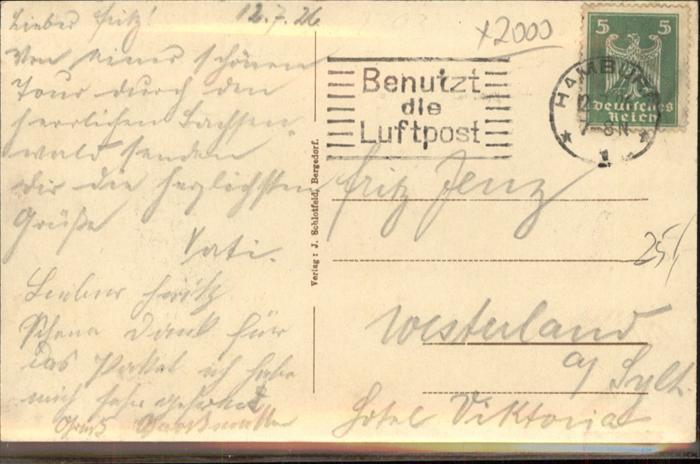 Lieber Fritz! 12.7.26
Von einer schönen
Tour durch den
herrlichen Sachsen-
wald senden
Dir die herzlichsten
Grüße
Vati.
Lieber Fritz
Schenn Dank für
das Paket ich habe
mich sehr gefreut
Gruß
x2000
Benutzt
die
Luftpost
HAMBURG
12
7-8N
1
5 5
Deutsches
Reich
Verlag: J. Schlotfeld, Bergedorf.
Fritz Jenz
25/
Westerland
a/ Sylt.
Hotel Viktoria